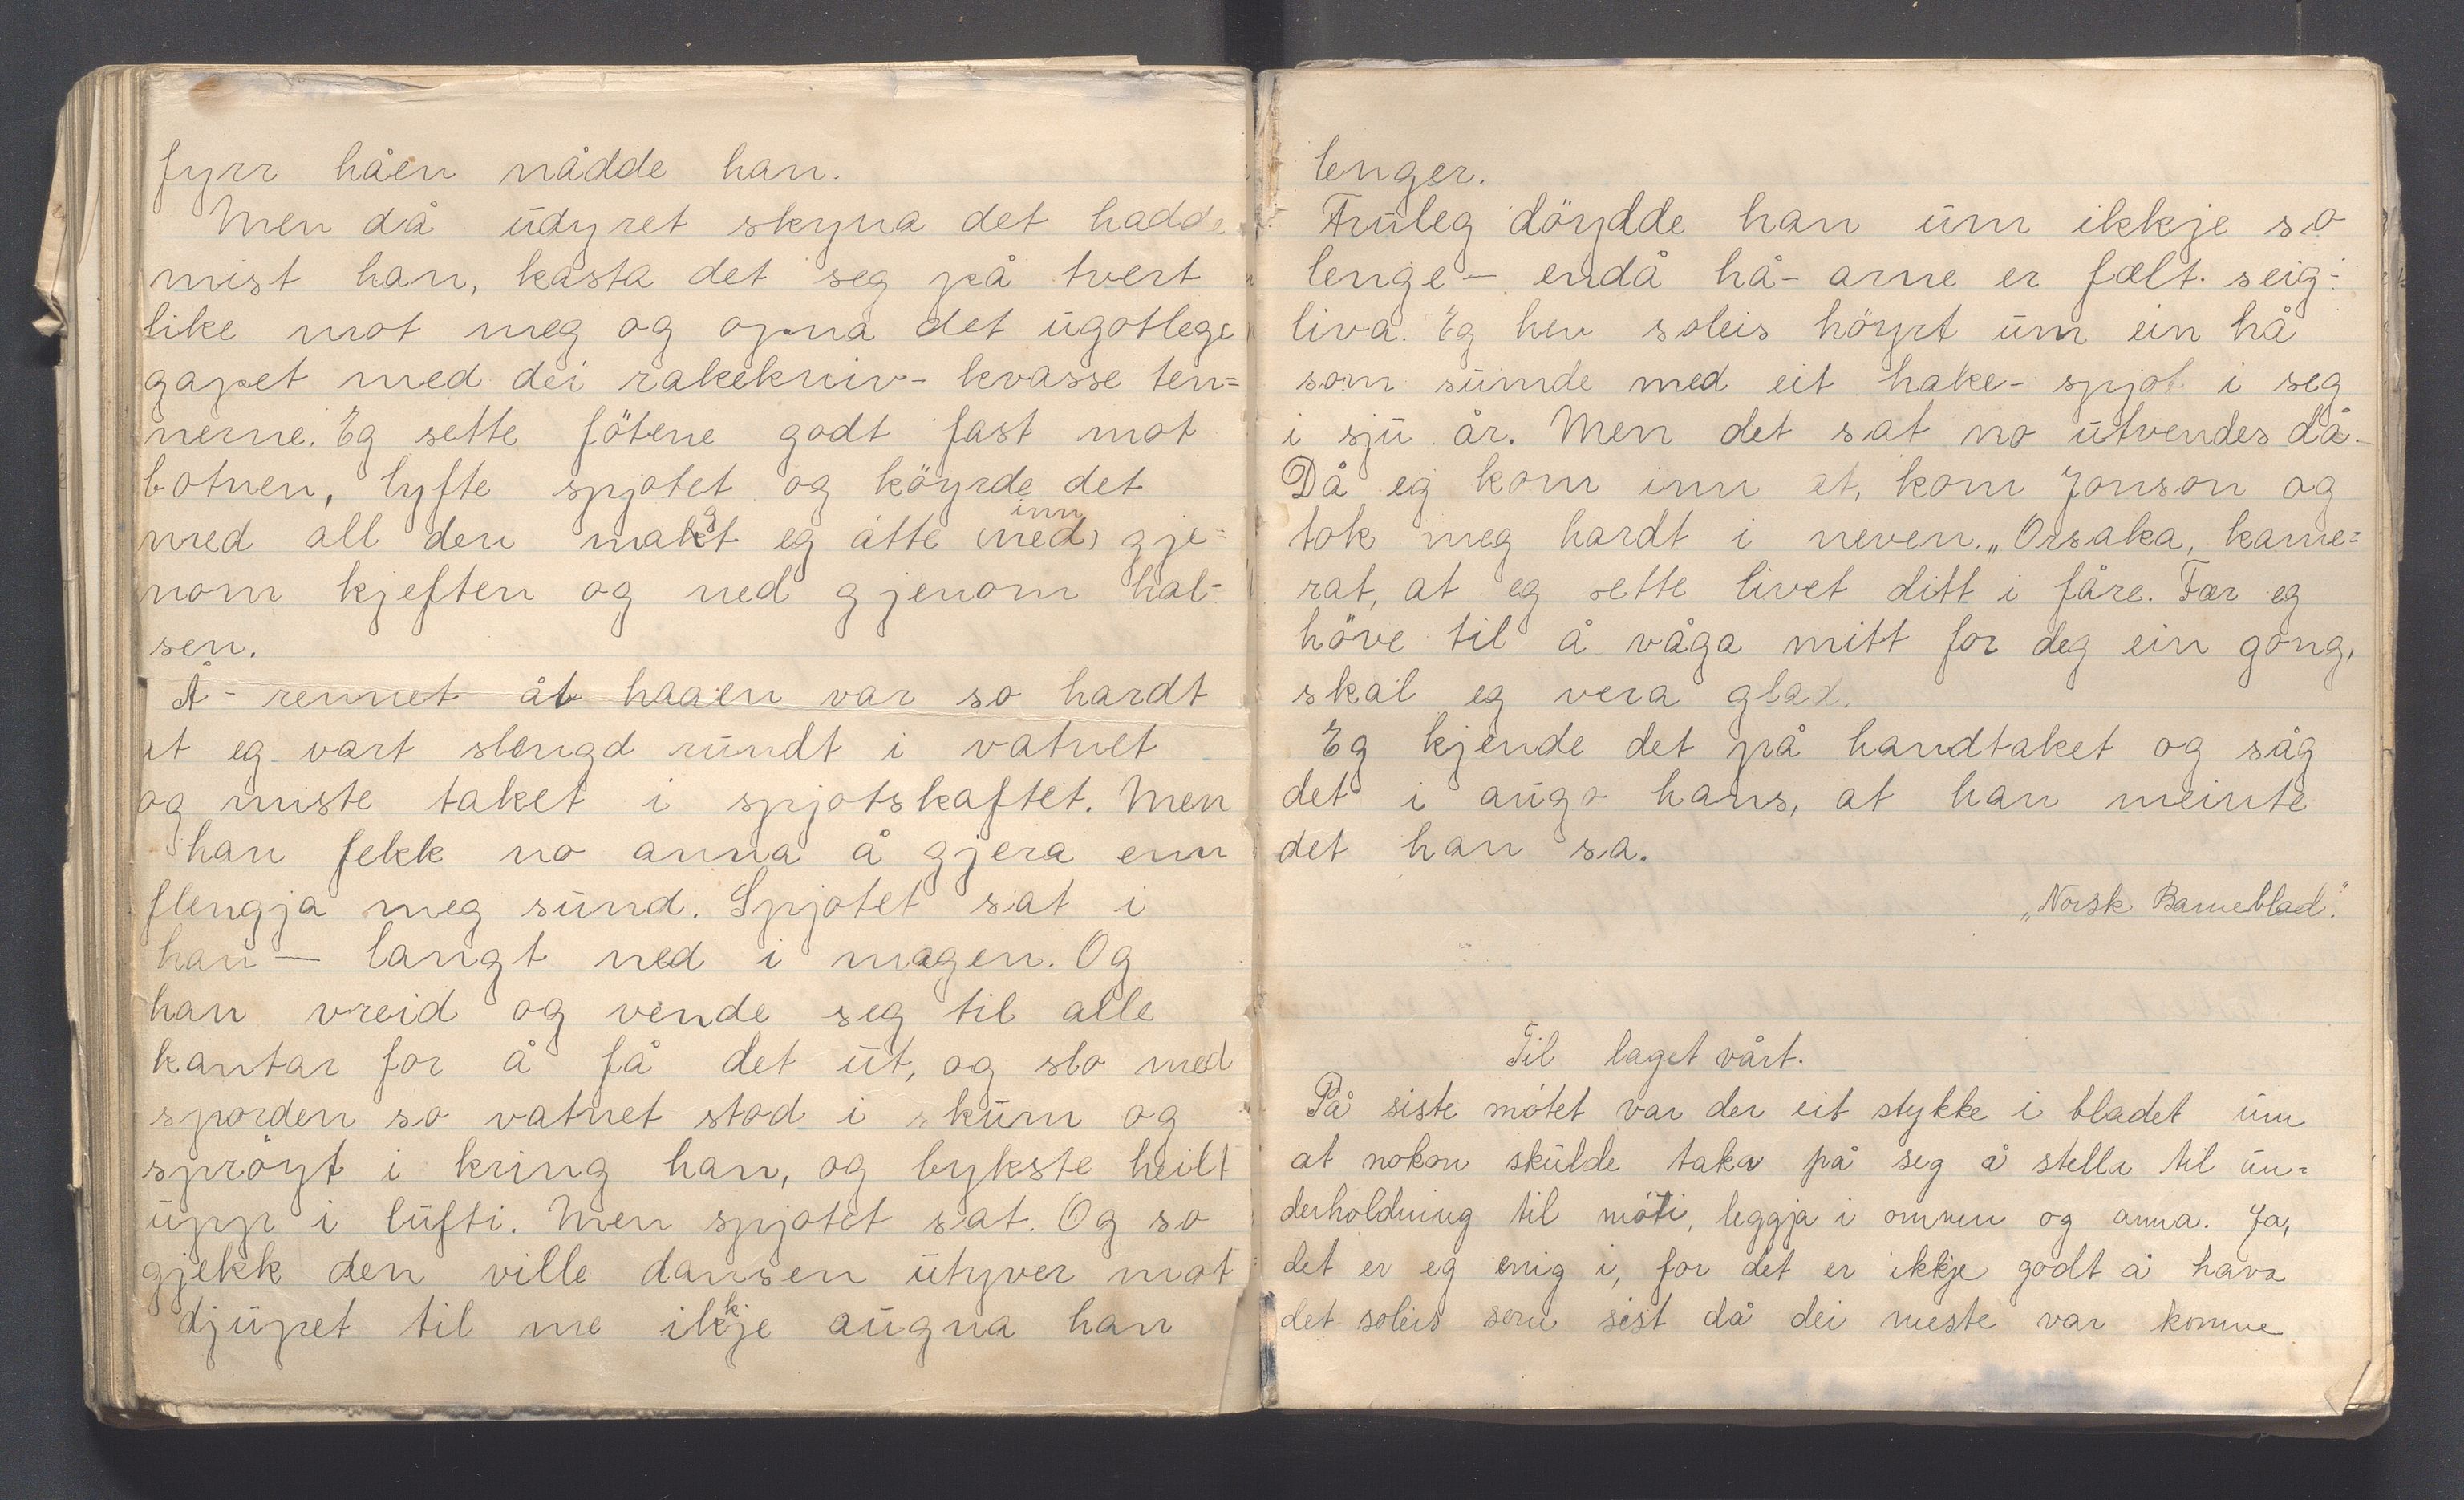 fyrr håen nådde han.
Men då udyret skyna det hadde
mist han, kasta det seg på tvert
like mot meg og opna det ugotlege
gapet med dei rakekniv- kvasse ten=
nerne. Eg sette fötene godt fast mot
botnen, lyfte spjotet og köyrde det
inn
med all den magt eg åtte (ned) gje=
nom kjeften og ned gjenom hal-
sen.
Å- rennet åt haaen var so hardt
at eg vart slengd rundt i vatnet
og miste taket i spjotskaftet. Men
han fekk no anna å gjera enn
flengja meg sund. Spjotet sat i
han — langt ned i magen. Og
han vreid og vende seg til alle
kantar for å få det ut, og slo med
sporden so vatnet stod i skum og
spröyt i kring han, og bykste heilt
upp i lufti. Men spjotet sat. Og so
gjekk den ville dansen utyver mot
djupet til me ikkje augna han
lenger.
Truleg döydde han um ikkje so
lenge — endå hå- arne er fælt seig-
liva. Eg hev soleis höyrt um ein hå
som sumde med eit hake- spjot i seg
i sju år. Men det sat no utvendes då.
Då eg kom inn at, kom Jonson og
tok meg hardt i neven. „Orsaka, kame=
rat, at eg sette livet ditt i fåre. Fær eg
höve til å våga mitt for deg ein gong,
skal eg vera glad.
Eg kjende det på handtaket og såg
det i augo hans, at han meinte
det han sa.
„Norsk Barneblad."
Til laget vårt.
På siste mötet var der eit stykke i bladet um
at nokon skulde taka på seg å stella til un=
derholdning til möti, leggja i omnen og anna. Ja,
det er eg enig i, for det er ikkje godt å hava
det soleis som sist då dei meste var komne